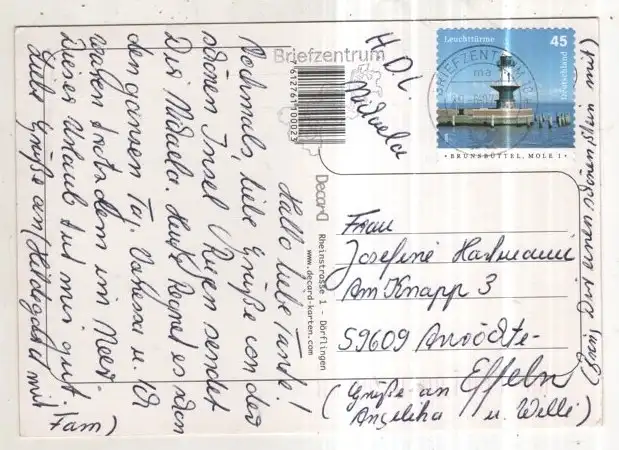 Hallo liebe Tante!
Nochmals liebe Grüße von der
schönen Insel Rügen sendet
Dir Nicaela. Heute Regnet es schon
den ganzen Tag. Vanessa u. Ich
waren trotzdem im Meer.
Dieser Urlaub tut mir gut.
Liebe Grüße an (Hildegard mit
Fam)
H.D.L.
Briefzentrum
6127617000023
Decard
Rheinstrasse 1 - Dörflingen
www.decard-karten.com
Leuchttürme
45
Deutschland
BRIEFZENTRUM
BRUNSBÜTTEL, MOLE 1
Frau
Josefine
Am Knapp 3
59609 Anröchte-
Effeln
(Grüße an
Angelika u. Willi)